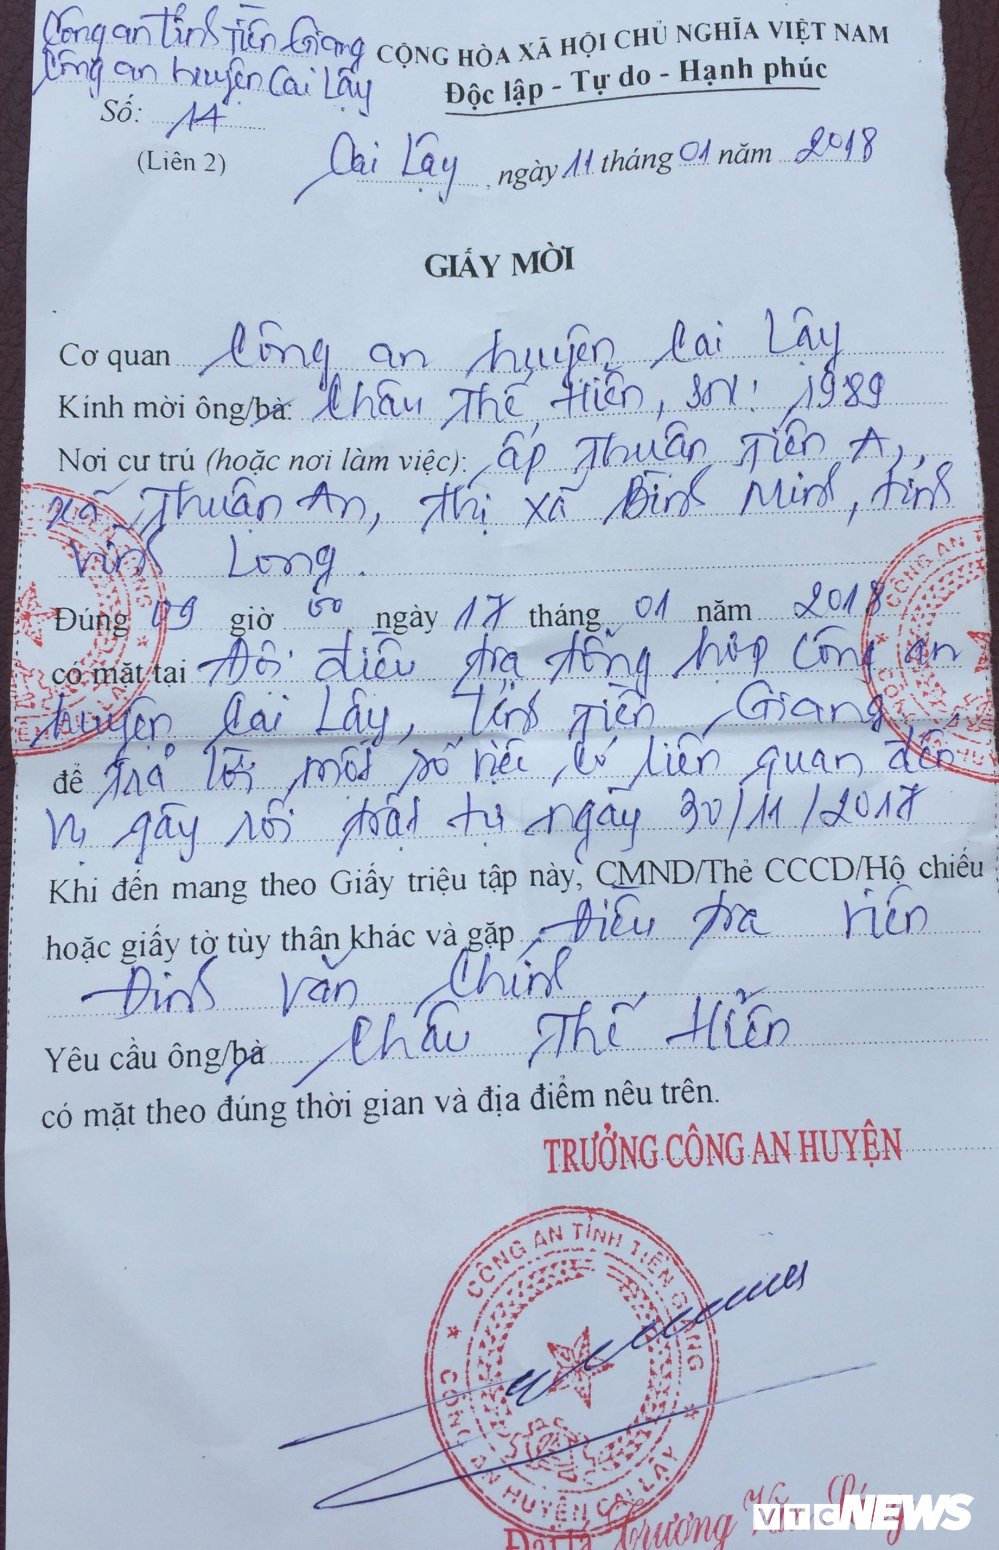 Công an tỉnh Tiền Giang
Công an huyện Cai Lậy
CỘNG HÒA XÃ HỘI CHỦ NGHĨA VIỆT NAM
Độc lập - Tự do - Hạnh phúc
Số: 14
(Liên 2)
Cai Lậy, ngày 11 tháng 01 năm 2018
GIẤY MỜI
Cơ quan Công an huyện Cai Lậy
Kính mời ông/bà: Châu Thế Hiển, SN: 1989
Nơi cư trú (hoặc nơi làm việc): ấp Thuận Tiến A,
xã Thuận An, thị xã Bình Minh, tỉnh
Vĩnh Long.
Đúng 09 giờ 00 ngày 17 tháng 01 năm 2018
có mặt tại Đội điều tra tổng hợp Công an
huyện Cai Lậy, tỉnh Tiền Giang
để trả lời một số việc có liên quan đến
vụ gây rối trật tự ngày 30/11/2017
Khi đến mang theo Giấy triệu tập này, CMND/Thẻ CCCD/Hộ chiếu
hoặc giấy tờ tùy thân khác và gặp Điều tra viên
Đinh Văn Chính
Yêu cầu ông/bà Châu Thế Hiển
có mặt theo đúng thời gian và địa điểm nêu trên.
TRƯỞNG CÔNG AN HUYỆN
CÔNG AN TỈNH TIỀN GIANG
CÔNG AN HUYỆN CAI LẬY
Đại tá Trương Văn
VTC NEWS